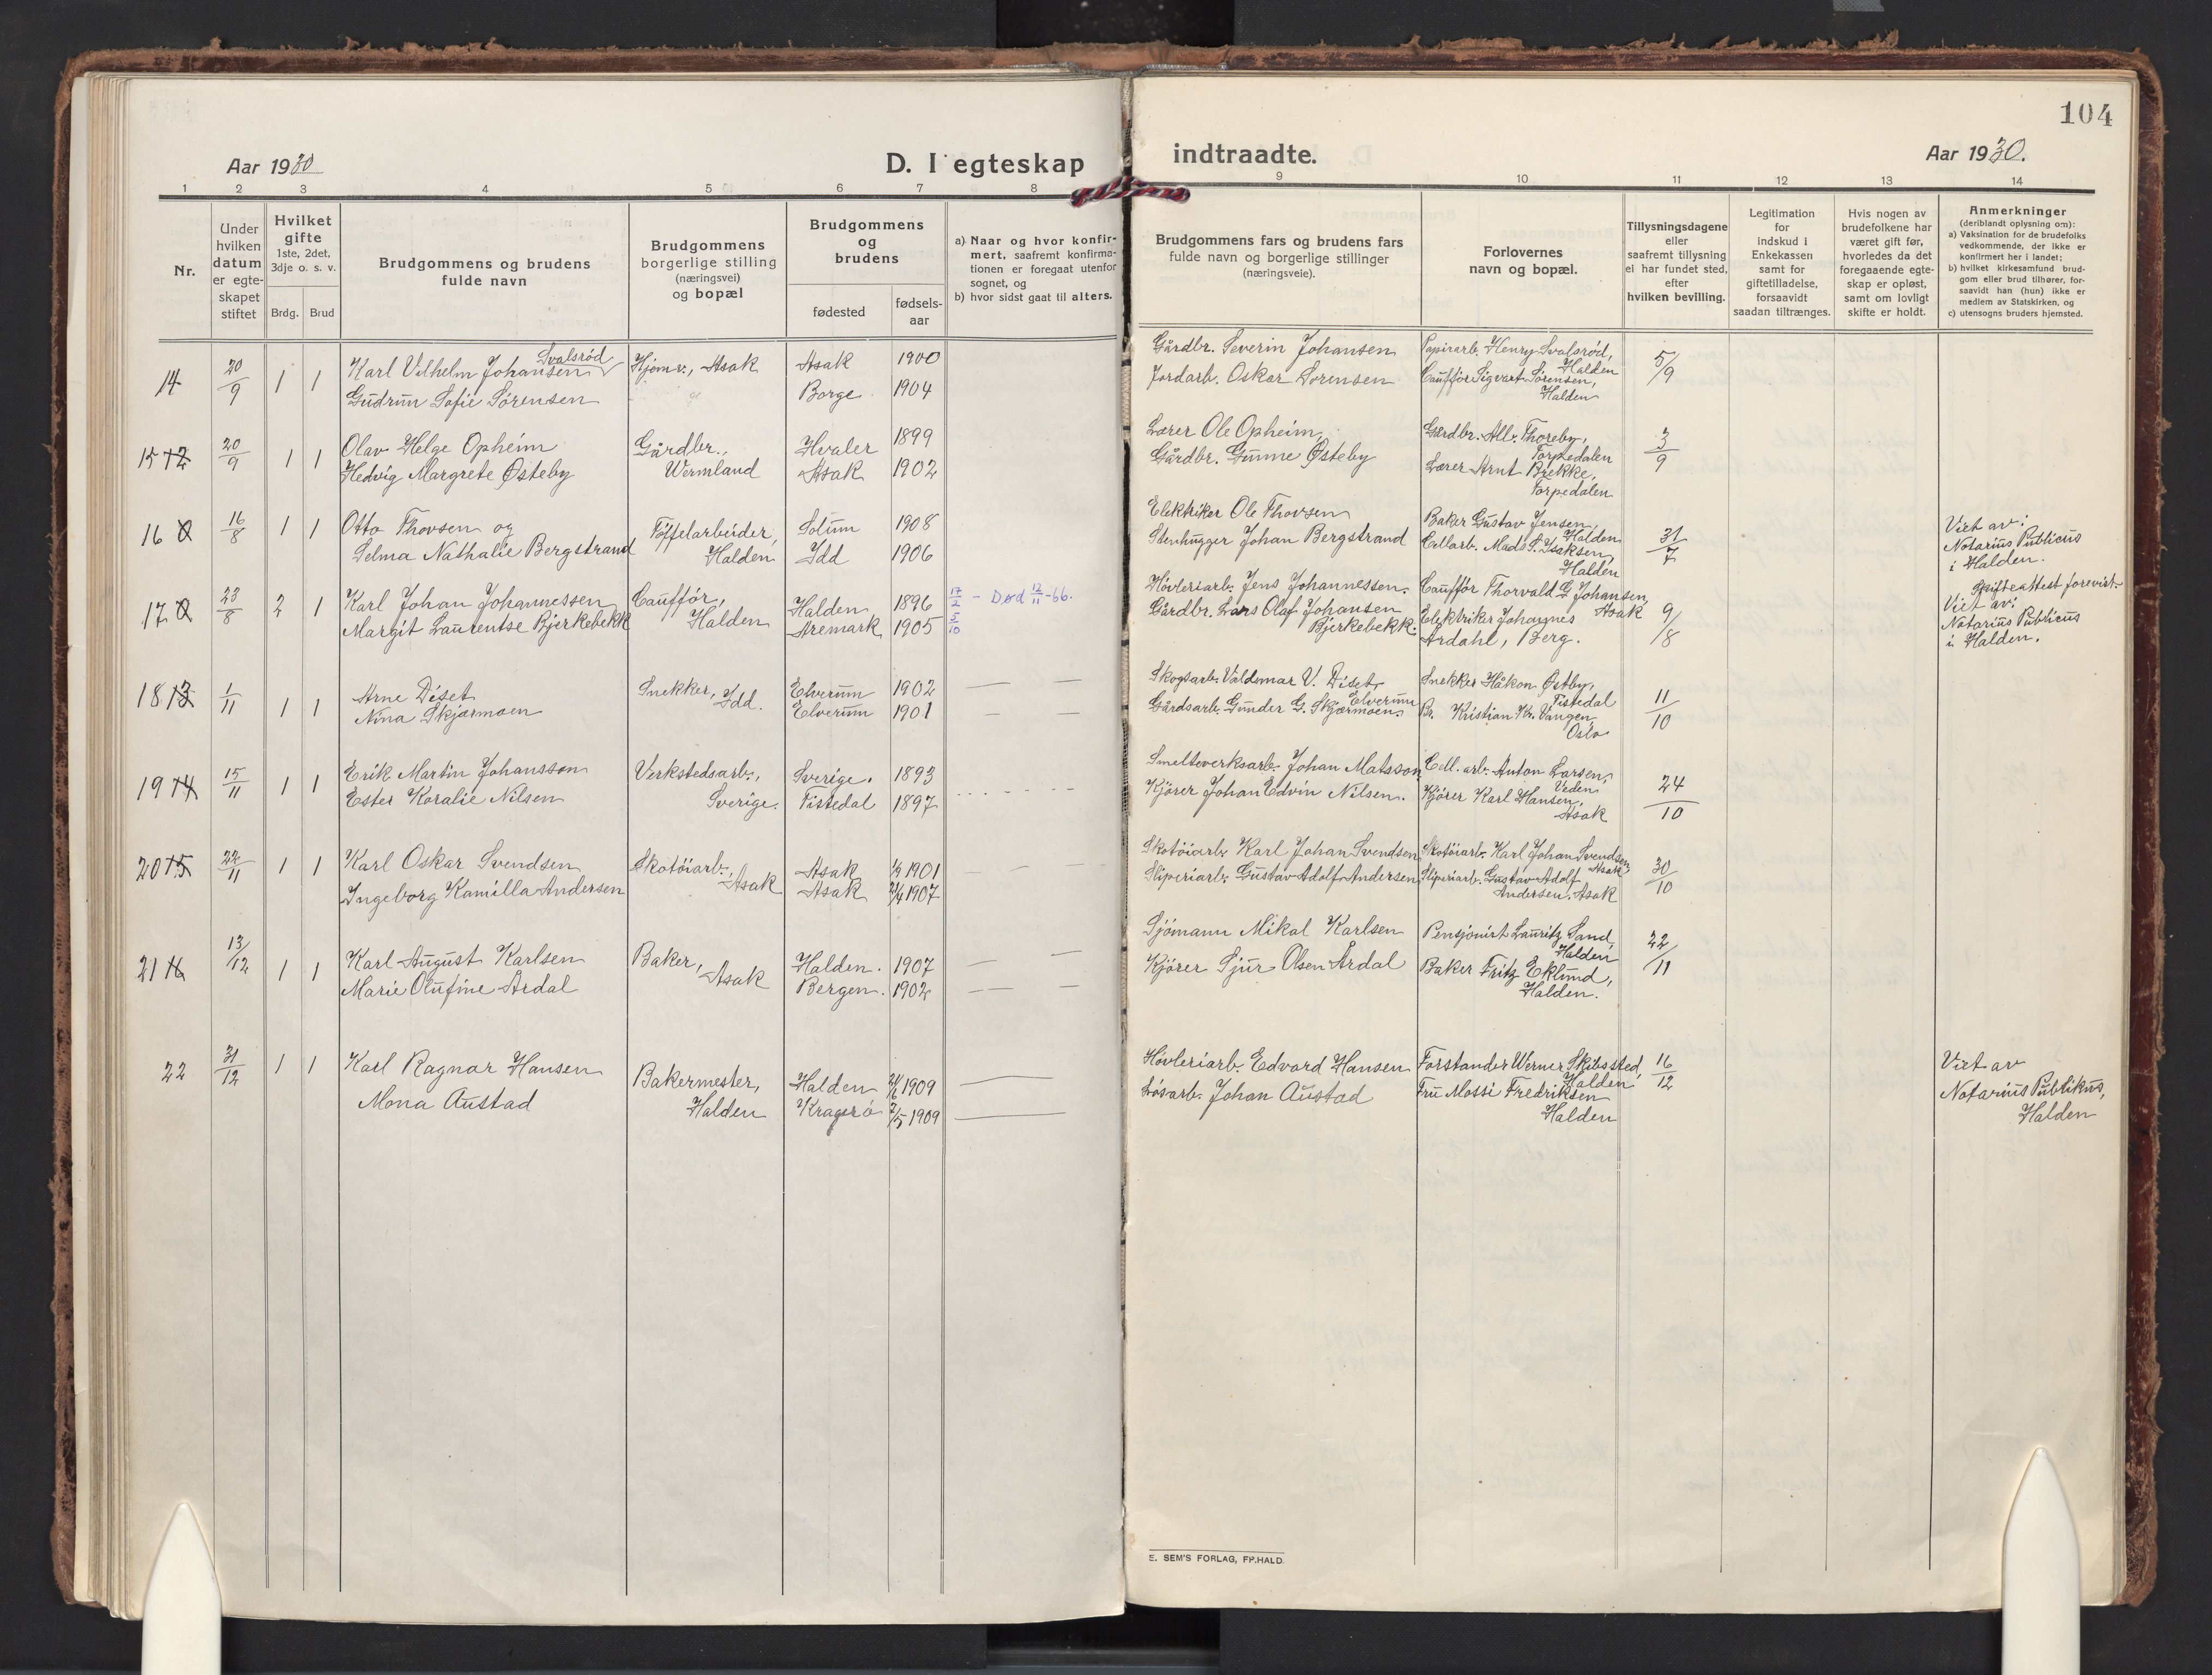 104
Aar 1930
D. I egteskap indtraadte.
Aar 1930.
1 2 3 4 5 6 7 8 9 10 11 12 13 14
Nr.
Under hvilken datum er egteskapet stiftet
Hvilket gifte
1ste, 2det, 3dje o. s. v.
Brdg. Brud
Brudgommens og brudens
fulde navn
Brudgommens
borgerlige stilling
(næringsvei)
og bopæl
Brudgommens
og
brudens
fødested
fødsels-
aar
a) Naar og hvor konfir-
mert, saafremt konfirma-
tionen er foregaat utenfor
sognet, og
b) hvor sidst gaat til alters.
Brudgommens fars og brudens fars
fulde navn og borgerlige stillinger
(næringsveie).
Forlovernes
navn og bopæl.
Tillysningsdagene
eller
saafremt tillysning
ei har fundet sted,
efter
hvilken bevilling.
Legitimation
for
indskud i
Enkekassen
samt for
giftetilladelse,
forsaavidt
saadan tiltrænges.
Hvis nogen av
brudefolkene har
været gift før,
hvorledes da det
foregaaende egte-
skap er opløst,
samt om lovligt
skifte er holdt.
Anmerkninger
(deriblandt oplysning om):
a) Vaksination for de brudefolks
vedkommende, der ikke er
konfirmert her i landet;
b) hvilket kirkesamfund brud-
gom eller brud tilhører, for-
saavidt han (hun) ikke er
medlem av Statskirken, og
c) utensogns bruders hjemsted.
14 20/9 1 1 Karl Vilhelm Johansen Svalsrød Hjemv., Asak Asak 1900 Gårdbr. Severin Johansen Papirarb. Henry Svalsrød, Halden 5/9
Gudrun Sofie Sørensen Borge 1904 Jordarb. Oskar Sørensen Caufför Sigvart Sørensen, Halden
15 12 20/9 1 1 Olav Helge Opheim Gårdbr., Wermland Hvaler 1899 Lærer Ole Opheim Gårdbr. Alb. Thoreby, Torpedalen 3/9
Hedvig Margrete Østeby Asak 1902 Gårdbr. Gunne Østeby Lærer Arnt Brekke, Torpedalen
16 0 16/8 1 1 Otto Thovsen og Töffelarbeider, Halden Solum 1908 Elektriker Ole Thovsen Baker Gustav Jensen, Halden 31/7 Viet av: Notarius Publicus i Halden.
Selma Nathalie Bergstrand Idd 1906 Stenhugger Johan Bergstrand Cellarb. Mads S. Isaksen, Halden
17 0 23/8 2 1 Karl Johan Johannessen Caufför, Halden Halden 1896 17/2 - Død 12/11-66. Høvleriarb. Jens Johannessen. Caufför Thorvald G. Johansen, Asak 9/8 Skifteattest forevist. Viet av: Notarius Publicus i Halden.
Margit Laurentse Bjerkebekk Aremark 1905 5/10 Gårdbr. Lars Olaf Johansen Bjerkebekk. Elektriker Johannes Årdahl, Berg.
18 13 1/11 1 1 Arne Diset Snekker, Idd. Elverum 1902 Skogsarb. Valdemar V. Diset, Elverum Snekker Håkon Østby, Tistedal 11/10
Nina Skjærmoen Elverum 1901 Gårdsarb. Gunder G. Skjærmoen. Br. Kristian Kr. Vangen, Oslo
19 14 15/11 1 1 Erik Martin Johansson Verkstedsarb., Sverige. Sverige. 1893 Smelteverksarb. Johan Matsson Cell. arb. Anton Larsen, Veden 24/10
Ester Koralie Nilsen Tistedal 1897 Kjører Johan Edvin Nilsen. Kjører Karl Hansen, Asak
20 15 22/11 1 1 Karl Oskar Svendsen Skotøiarb., Asak Asak 1901 Skotøiarb. Karl Johan Svendsen Skotøiarb. Karl Johan Svendsen, Asak 30/10
Ingeborg Kamilla Andersen Asak 1907 Sliperiarb. Gustav Adolf Andersen Sliperiarb. Gustav Adolf Andersen, Asak
21 16 13/12 1 1 Karl August Karlsen Baker, Asak Halden. 1907 Sjömann Mikal Karlsen Pensjonist Lauritz Sand, Halden 22/11
Marie Olufine Årdal Bergen. 1902 Kjører Sjur Olsen Årdal Baker Fritz Eklund, Halden.
22 31/12 1 1 Karl Ragnar Hansen Bakermester, Halden Halden 1909 Høvleriarb. Edvard Hansen Forstander Werner Skibssted, Halden 16/12 Viet av Notarius Publikus, Halden
Mona Austad Kragerø 2/5 1909 Løsarb. Johan Austad Fru Mossi Fredriksen Halden
E. SEM'S FORLAG, FR.HALD.